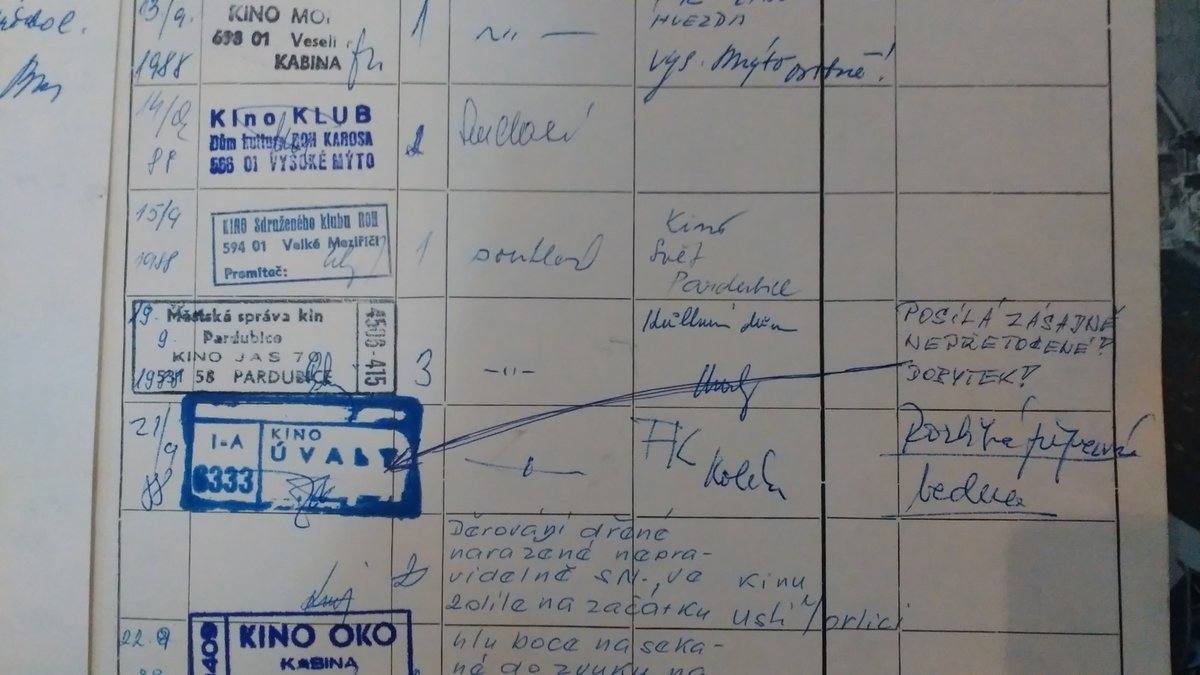 13/9.
1988
KINO MO
698 01 Veselí
KABINA
1
HVĚZDA
Vys. Mýto
14/9
88
Kino KLUB
Dům kultury ROH KAROSA
566 01 VYSOKÉ MÝTO
2
15/9
1988
KINO Sdruženého klubu ROH
594 01 Velké Meziříčí
Promítač:
1
Kino
Svět
Pardubice
19.
9.
1988
Městská správa kin
Pardubice
KINO JAS 70
58 PARDUBICE
4506-415
3
-"-
Kulturní dům
POSÍLÁ ZÁSADNĚ
NEPŘETOČENÉ!
DOBYTEK!
21/9
88
I-A
6333
KINO
ÚVALY
FK
Kolín
Rozbitá přepravní
bedna
Děrování dřené
naražené nepra-
videlně SN., ve kinu
2 díle na začátku Ústí/Orlicí
2
22.9
KINO OKO
KABINA
409
hluboce naseka-
né do zvuku na